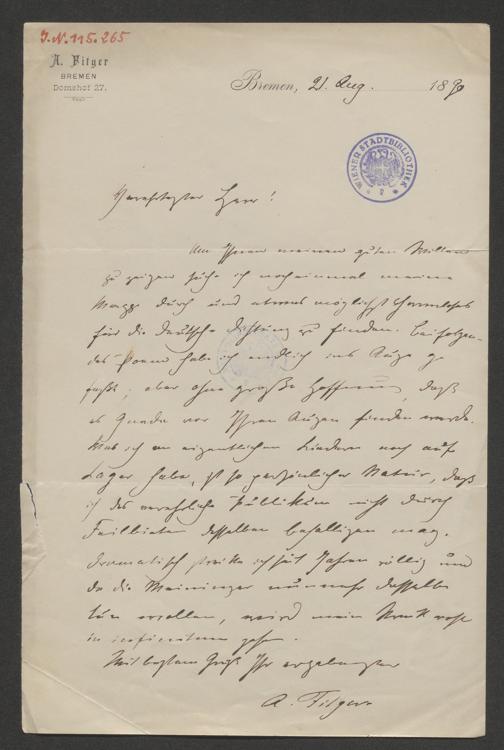 J.N. 115.265
A. Fitger
BREMEN
Domshof 27.
Bremen, 21. Aug. 1890
WIENER STADTBIBLIOTHEK
Verehrtester Herr!
Um Ihnen meinen guten Willen
zu zeigen suche ich noch einmal meine
Mappe durch und etwas möglichst Harmloses
für die deutsche Dichtung zu finden. Beifolgen-
des Poem habe ich endlich ins Auge ge-
faßt; aber ohne große Hoffnung, daß
es Gnade vor Ihren Augen finden werde.
Was ich an eigentlichen Liedern noch auf
Lager habe, ist so persönlicher Natur, daß
ich das verehrliche Publikum nicht durch
Feilbieten desselben behelligen mag.
Dramatisch streike ich seit Jahren völlig und
da die Meininger nunmehr dasselbe
tun wollen, wird mein Streik wohl
in infinitum gehen.
Mit bestem Gruß Ihr ergebenster
A. Fitger.